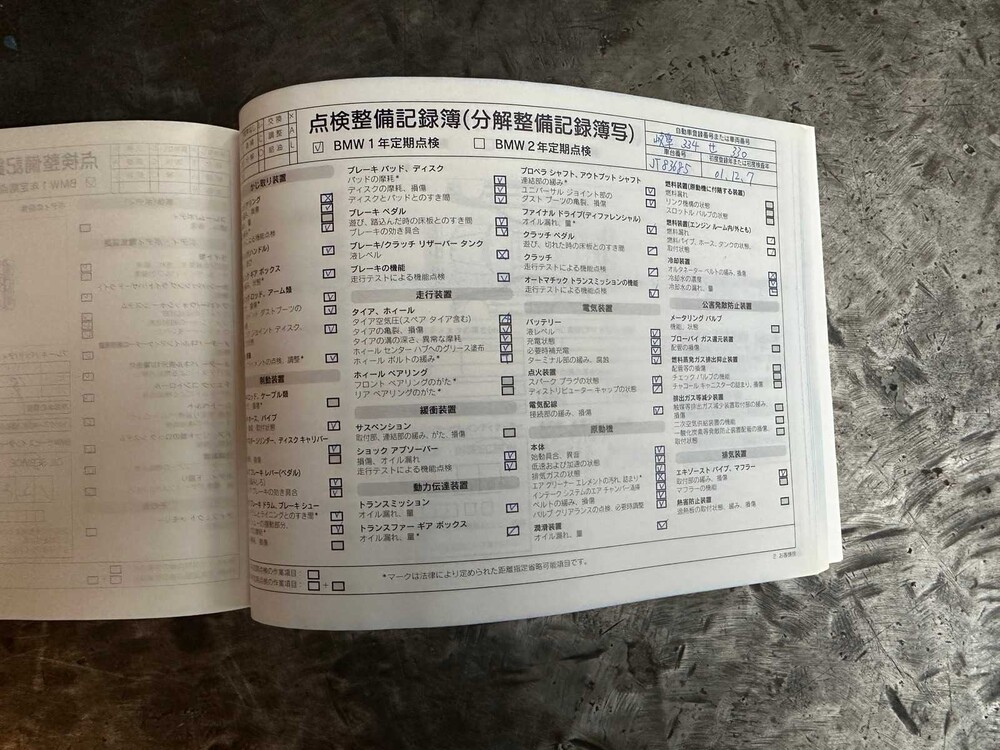 点検整備記録簿(分解整備記録簿写)
BMW 1年定期点検
BMW 2年定期点検
交換
調整 A
給油 L
自動車登録番号または車両番号
岐阜 334 せ 330
車台番号
初度登録年または初度検査年
JT83685
01.12.7
かじ取り装置
ギア ボックス
ロッド、アーム類
制動装置
ロッド、ケーブル類
ブレーキの効き具合
ブレーキ パッド、ディスク
パッドの摩耗*
ディスクの摩耗、損傷
ディスクとパッドとのすき間
ブレーキ ペダル
遊び、踏込んだ時の床板とのすき間
ブレーキの効き具合
ブレーキ/クラッチ リザーバー タンク
液レベル
ブレーキの機能
走行テストによる機能点検
走行装置
タイア、ホイール
タイア空気圧(スペア タイア含む)
タイアの亀裂、損傷
タイアの溝の深さ、異常な摩耗
ホイール センター ハブへのグリース塗布
ホイール ボルトの緩み*
ホイール ベアリング
フロント ベアリングのがた*
リア ベアリングのがた*
緩衝装置
サスペンション
取付部、連結部の緩み、がた、損傷
ショック アブソーバー
損傷、オイル漏れ
走行テストによる機能点検
動力伝達装置
トランスミッション
オイル漏れ、量*
トランスファー ギア ボックス
オイル漏れ、量*
プロペラ シャフト、アウトプット シャフト
連結部の緩み*
ユニバーサル ジョイント部の
ダスト ブーツの亀裂、損傷
ファイナル ドライブ(ディファレンシャル)
オイル漏れ、量*
クラッチ ペダル
遊び、切れた時の床板とのすき間
クラッチ
走行テストによる機能点検
オートマチック トランスミッションの機能
走行テストによる機能点検
電気装置
バッテリー
液レベル
充電状態
必要時補充電
ターミナル部の緩み、腐蝕
点火装置
スパーク プラグの状態
ディストリビューター キャップの状態
電気配線
接続部の緩み、損傷
原動機
本体
始動具合、異音
低速および加速の状態
排気ガスの状態
エア クリーナー エレメントの汚れ、詰まり*
インテーク システムのエア チャンバー油滓
ベルトの緩み、損傷
バルブ クリアランスの点検、必要時調整
潤滑装置
オイル漏れ、量
燃料装置(原動機に付随する装置)
燃料漏れ
リンク機構の状態
スロットル バルブの状態
燃料装置(エンジン ルーム内/外とも)
燃料漏れ
燃料パイプ、ホース、タンクの状態、
取付状態
冷却装置
オルタネーター ベルトの緩み、損傷
冷却水の濃度
冷却水の漏れ、量
公害発散防止装置
メータリング バルブ
機能、状態
ブローバイ ガス還元装置
配管の損傷
燃料蒸発ガス排出抑止装置
配管等の損傷
チェック バルブの機能
チャコール キャニスターの詰まり、損傷
排出ガス等減少装置
触媒等排出ガス減少装置取付部の緩み、
損傷
二次空気供給装置の機能
一酸化炭素等発散防止装置配管の損傷、
取付状態
排気装置
エキゾースト パイプ、マフラー
取付部の緩み、損傷
マフラーの機能
熱害防止装置
遮熱板の取付状態、緩み、損傷
*マークは法律により定められた距離指定省略可能項目です。